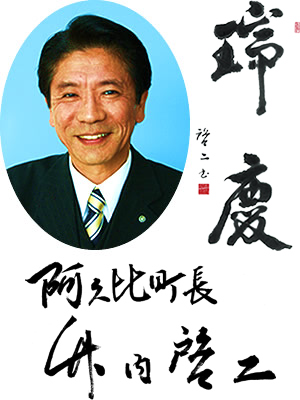 瑞慶
啓二書
阿久比町長
竹内啓二